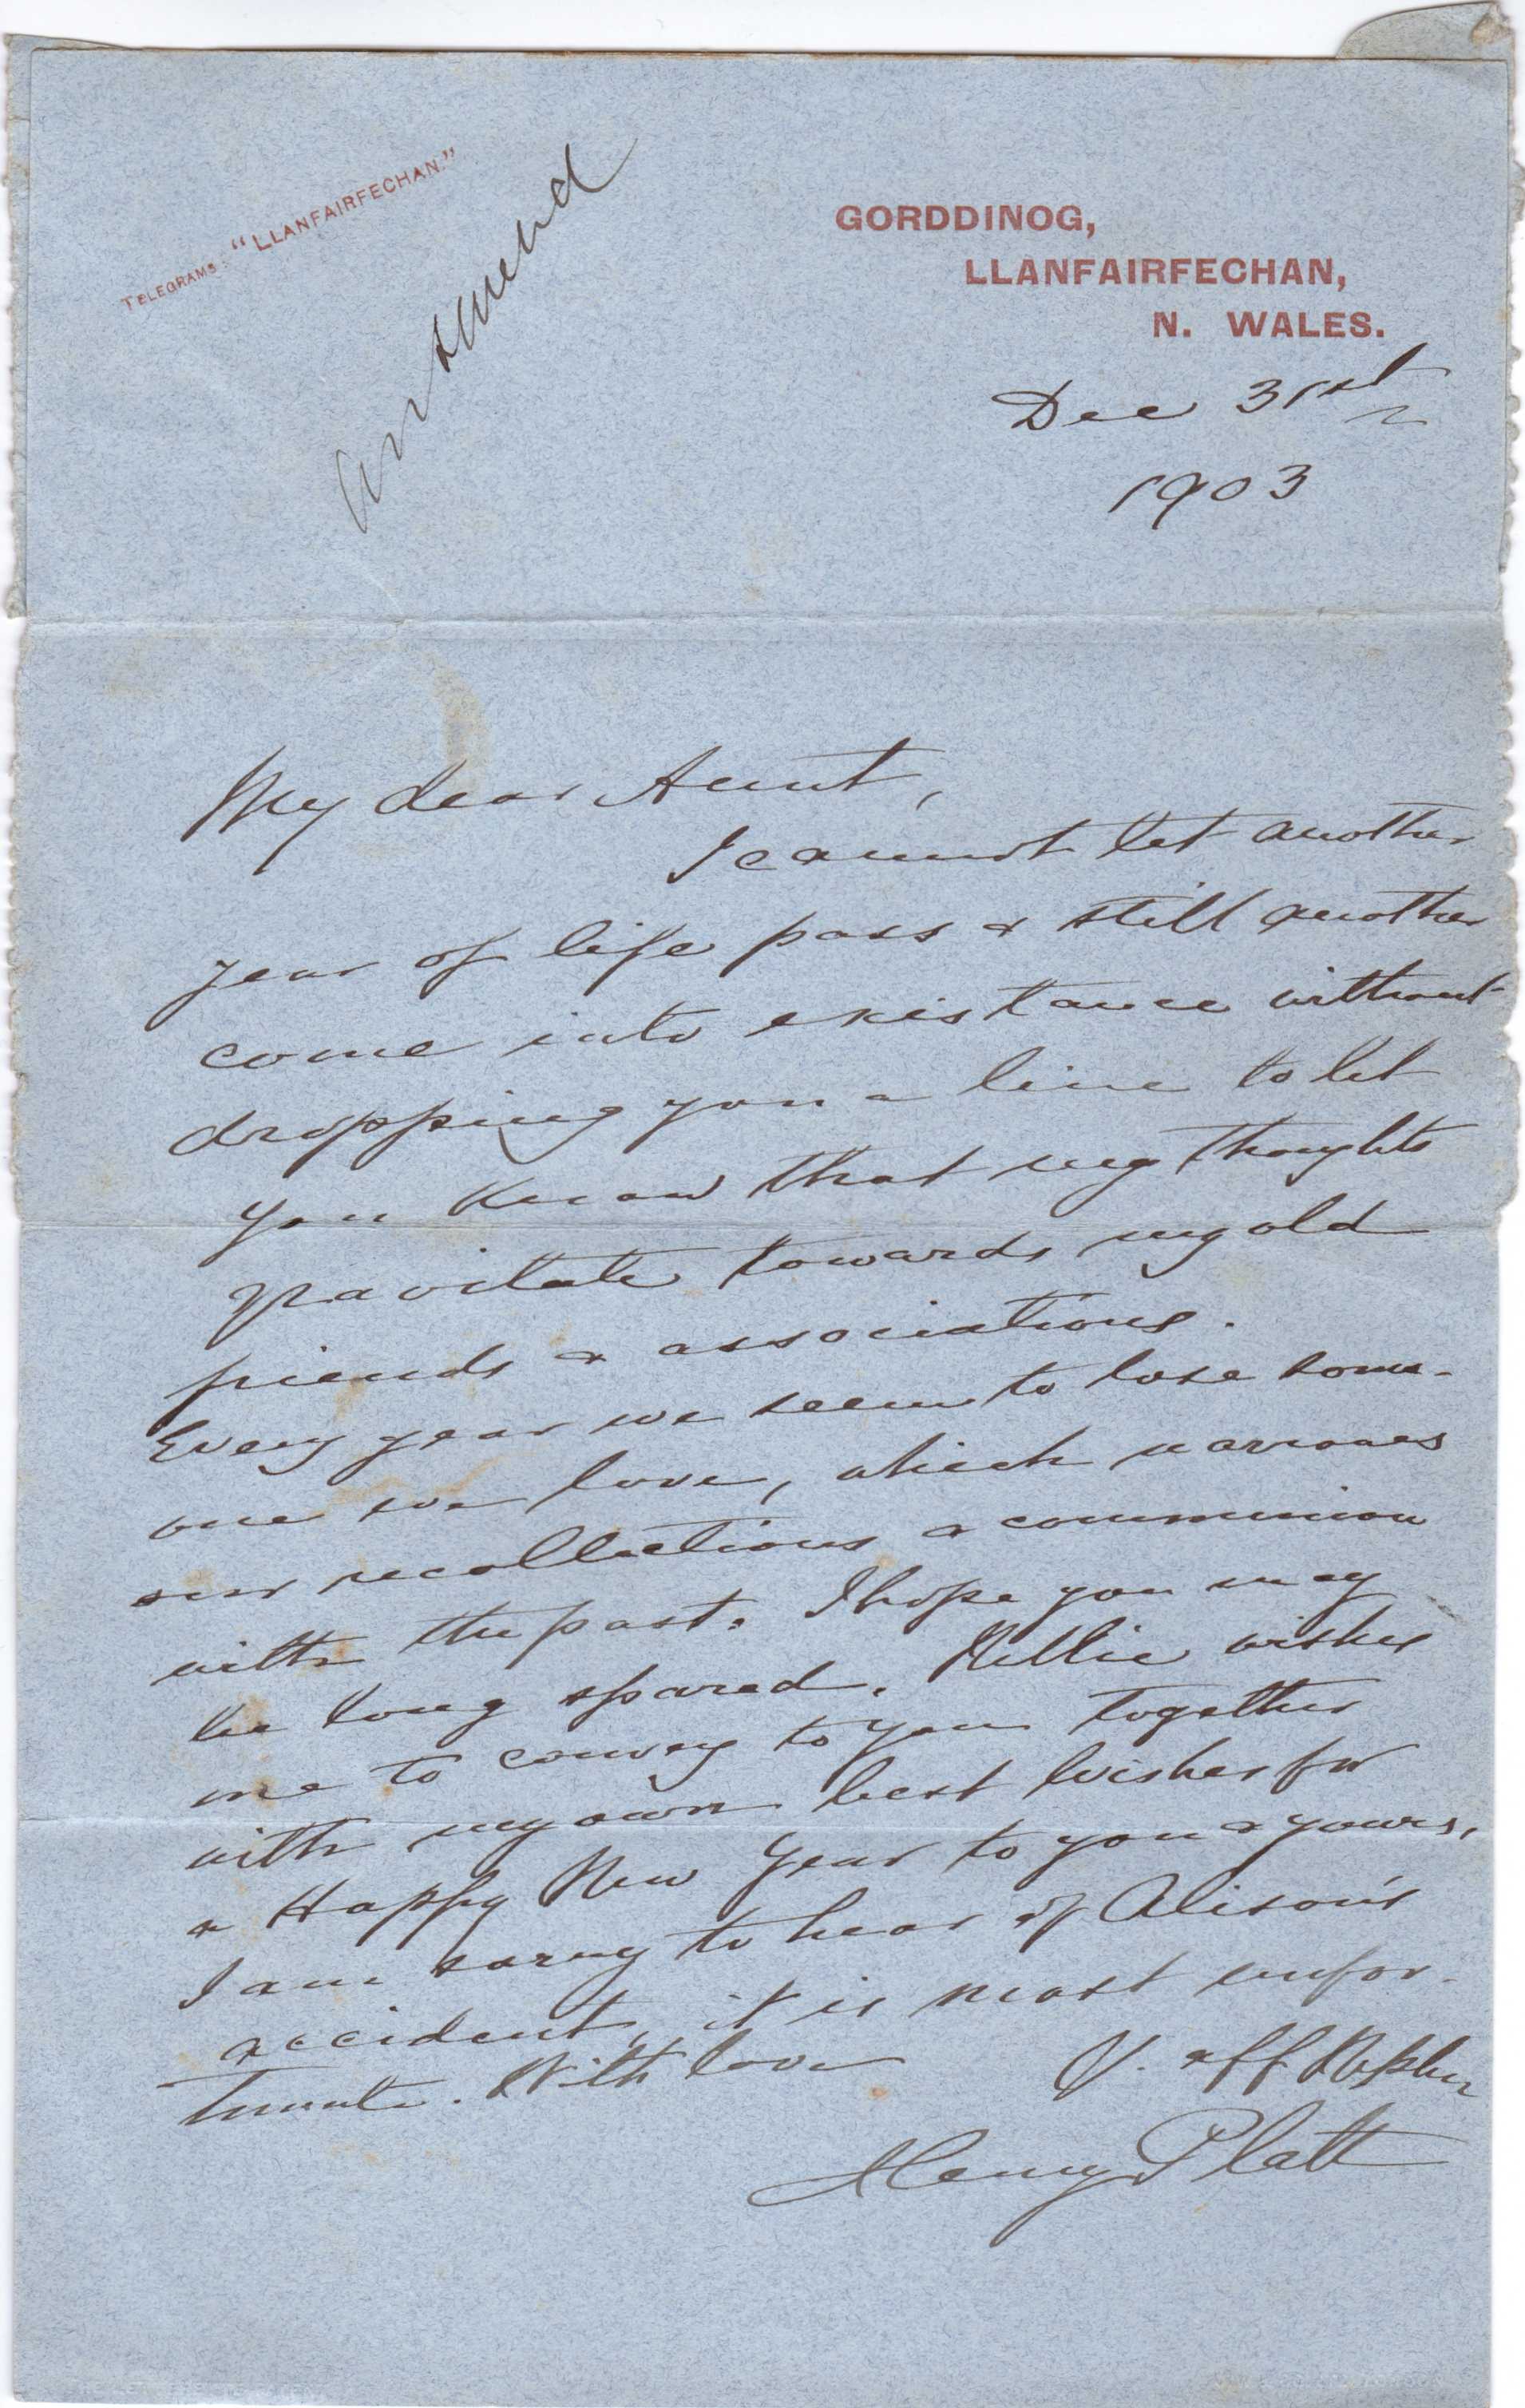 TELEGRAMS: "LLANFAIRFECHAN."
answered
GORDDINOG,
LLANFAIRFECHAN,
N. WALES.
Dec 31st
1903
My dear Aunt,
I cannot let another
year of life pass & still another
come into existance without
dropping you a line to let
you know that my thoughts
gravitate towards my old
friends & associations.
Every year we seem to lose some-
one we love, which narrows
our recollections & communion
with the past. I hope you may
be long spared. Nellie wishes
me to convey to you together
with my own best wishes for
a Happy New Year to you & yours.
I am sorry to hear of Alison's
accident, it is most unfor-
tunate. With love
Y. aff Nephew
Henry Platt